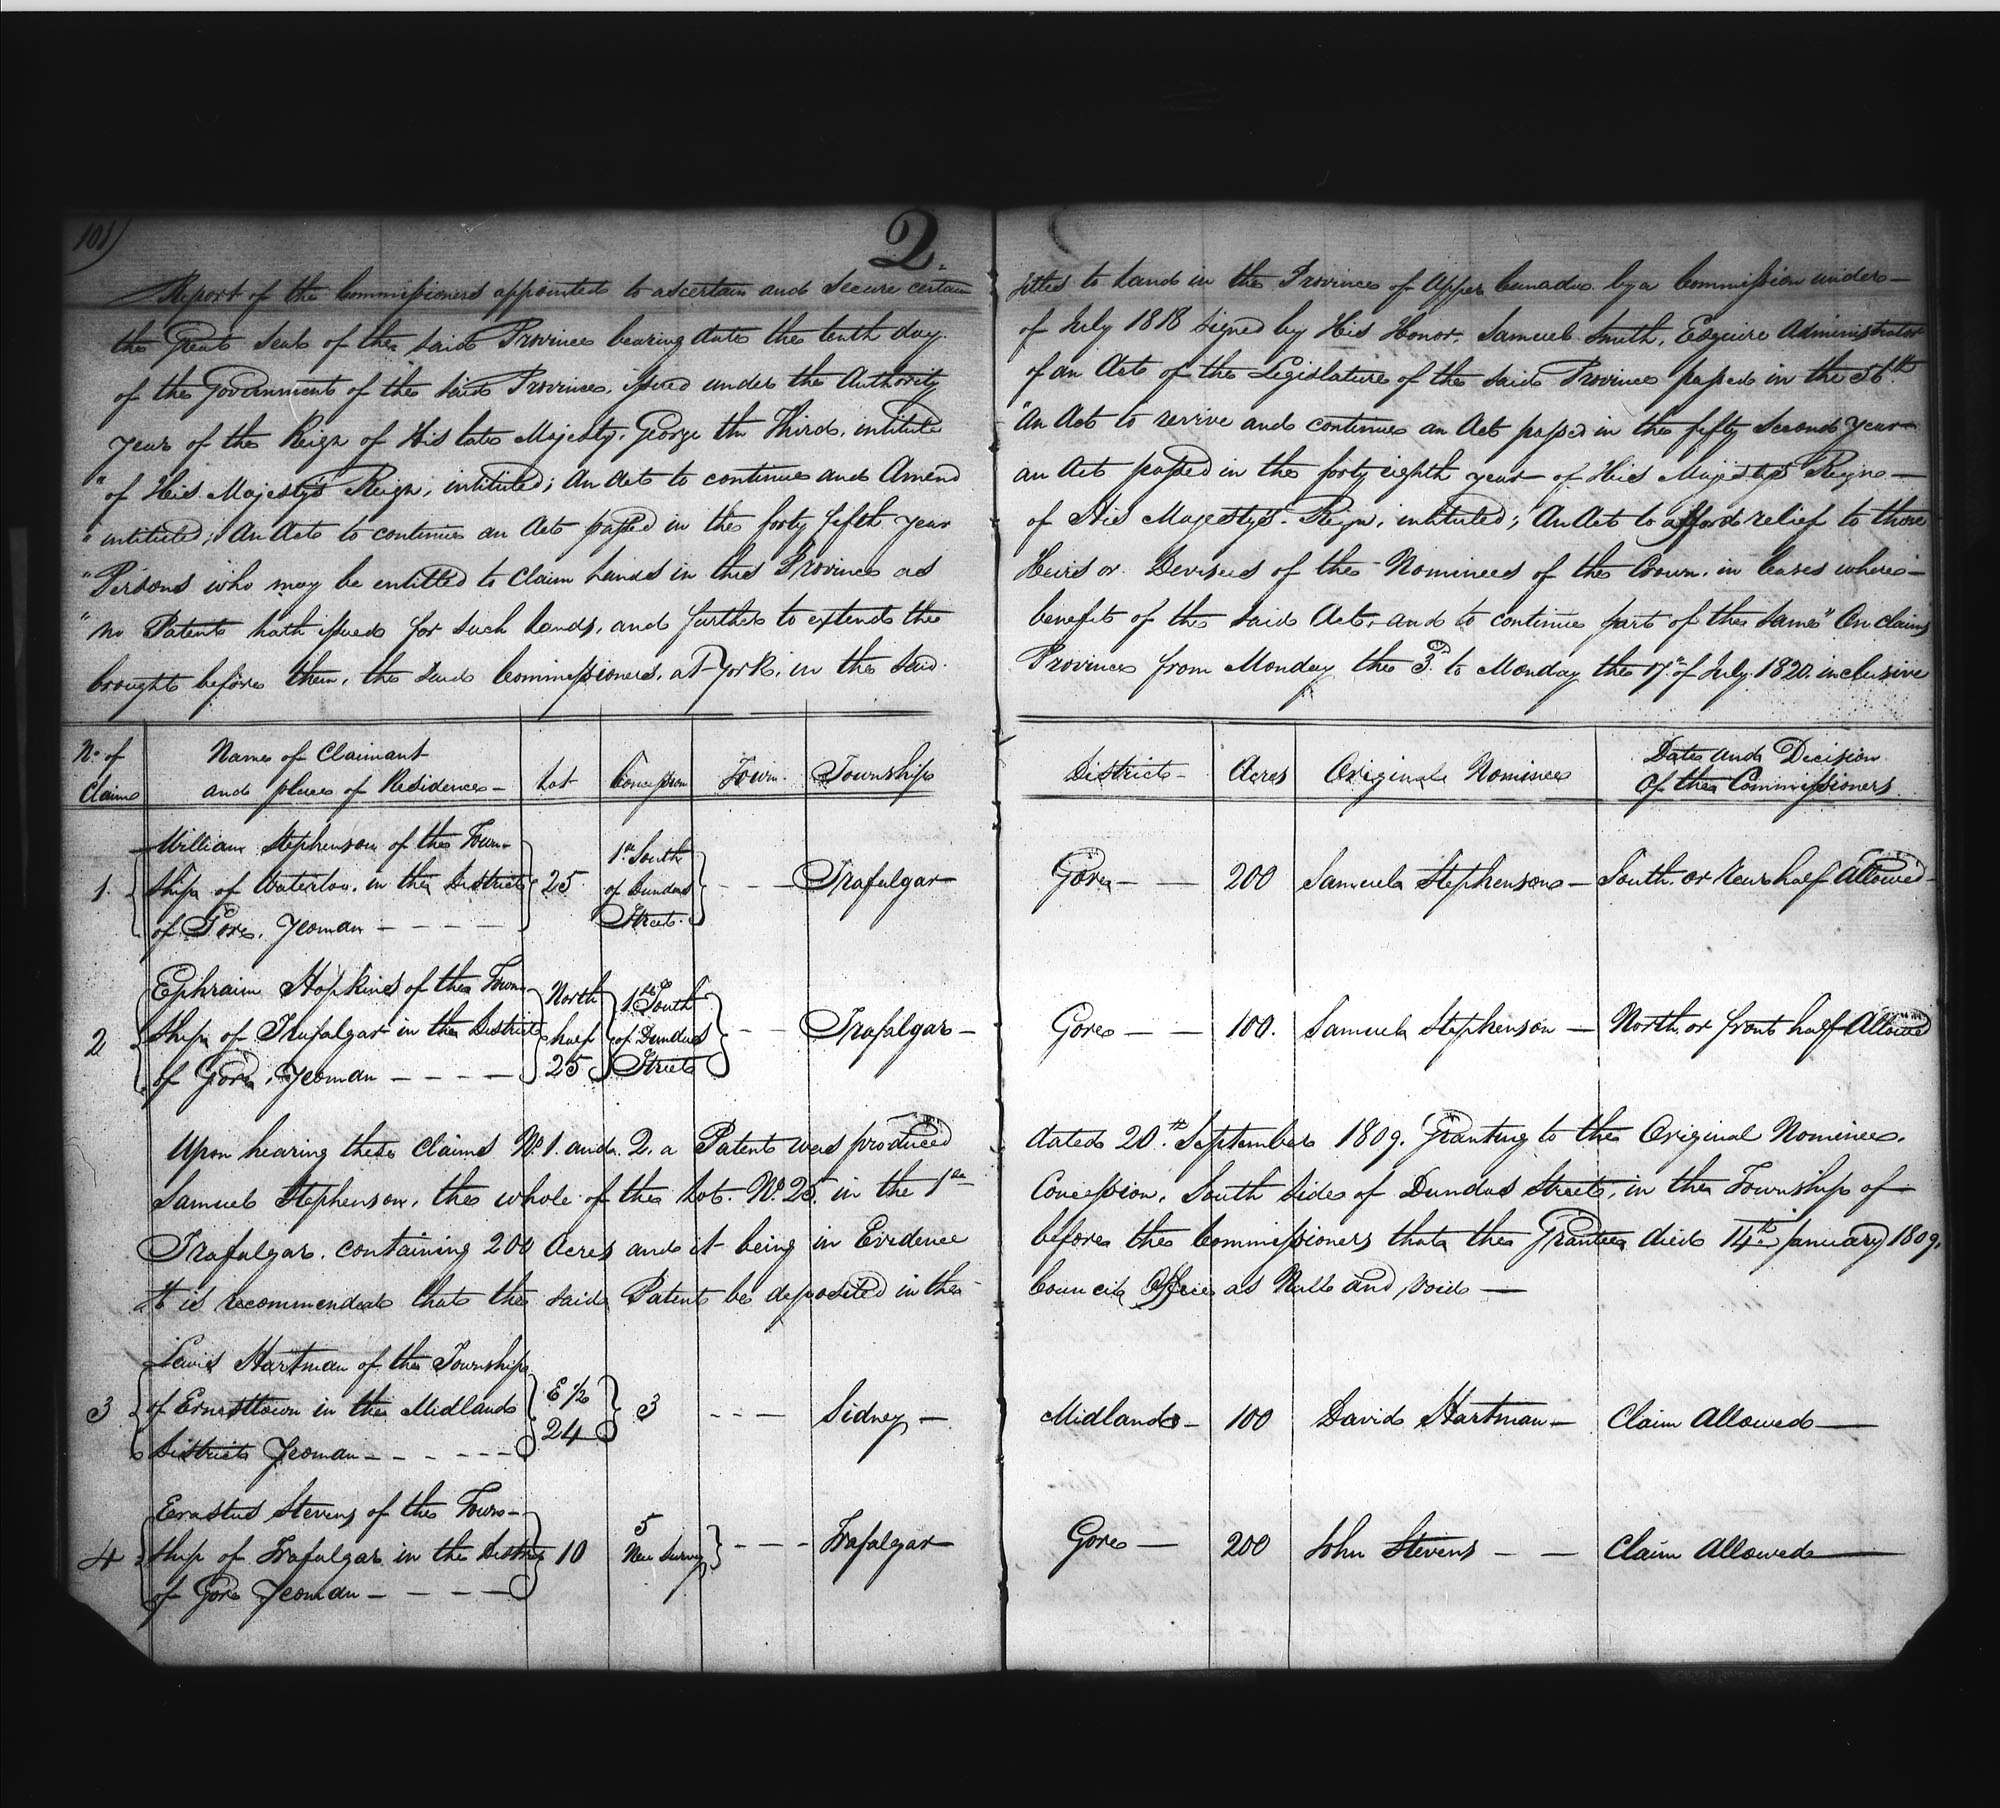 101)
2.
Report of the Commissioners appointed to ascertain and secure certain titles to Land in the Province of Upper Canada by a Commission under
the Great Seal of the said Province bearing date the tenth day of July 1818 signed by His Honor, Samuel Smith, Esquire Administrator
of the Government of the said Province, issued under the Authority of an Act of the Legislature of the said Province passed in the 56th
year of the Reign of His late Majesty, George the Third, intituled "An Act to revive and continue an Act passed in the fifty second year
"of His Majesty's Reign, intituled; An Act to continue and Amend an Act passed in the forty eighth year of His Majestys Reign
"intituled; An Act to continue an Act passed in the forty fifth year of His Majesty's Reign, intituled; "An Act to afford relief to those
"Persons who may be entitled to claim Lands in this Province as Heirs or Devisees of the Nominees of the Crown, in Cases where
"no Patent hath issued for such Lands, and further to extend the benefit of the said Act, and to continue part of the same" On claims
brought before them, the said Commissioners, at York, in the said Province from Monday the 3d to Monday the 17th of July 1820 inclusive
No of Claim | Names of Claimant and places of Residence | Lot | Concession | Town | Township | District | Acres | Original Nominee | Date and Decision Of the Commissioners
1. William Stephenson of the Town-
ship of Waterloo in the District
of Gore, Yeoman | 25 | 1st South of Dundas Street | Trafalgar | Gore | 200 | Samuel Stephenson | South or Rear half Allowed
2 Ephraim Hopkins of the Town-
ship of Trafalgar in the District
of Gore, Yeoman | North half 25 | 1st South of Dundas Street | Trafalgar | Gore | 100. | Samuel Stephenson | North or front half Allowed
Upon hearing these Claims No. 1. and 2, a Patent was produced dated 20th September 1809. Granting to the Original Nominee,
Samuel Stephenson, the whole of the Lot No 25. in the 1st Concession, South side of Dundas Street, in the Township of
Trafalgar, containing 200 Acres and it being in Evidence before the Commissioners that the Grantee died 14th January 1809,
It is recommended that the said Patent be deposited in the Council Office as Null and void
3 Lewis Hartman of the Township
of Ernesttown in the Midland
District Yeoman | E 1/2 24 | 3 | Sidney | Midland | 100 | David Hartman | Claim Allowed
4 Erastus Stevens of the Town-
ship of Trafalgar in the District
of Gore Yeoman | 10 | 5 New Survey | Trafalgar | Gore | 200 | John Stevens | Claim Allowed